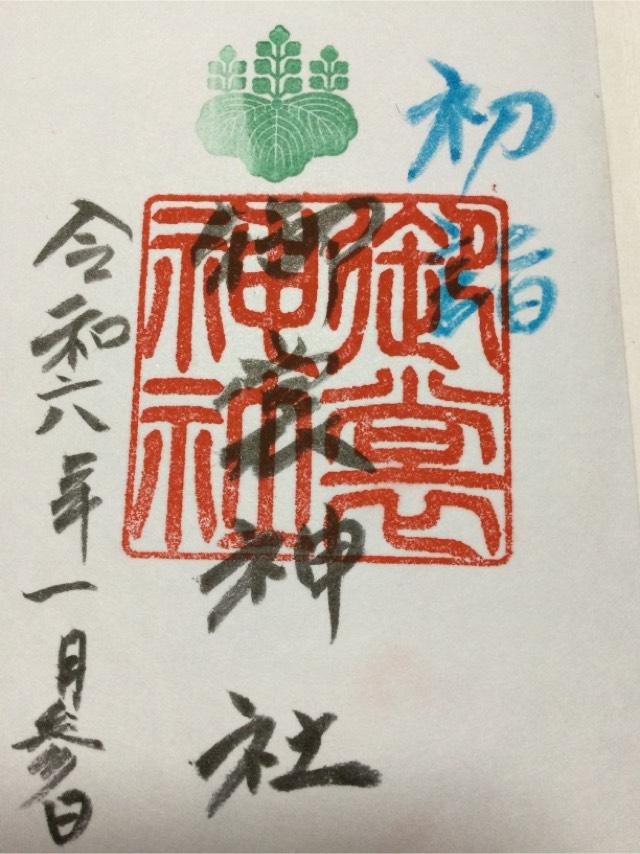 初詣
御裳神社
御裳
神社
令和六年一月参日